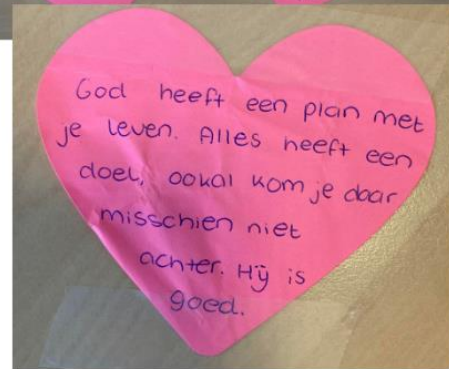 God heeft een plan met
je leven. Alles heeft een
doel, ookal kom je daar
misschien niet
achter. Hij is
goed.